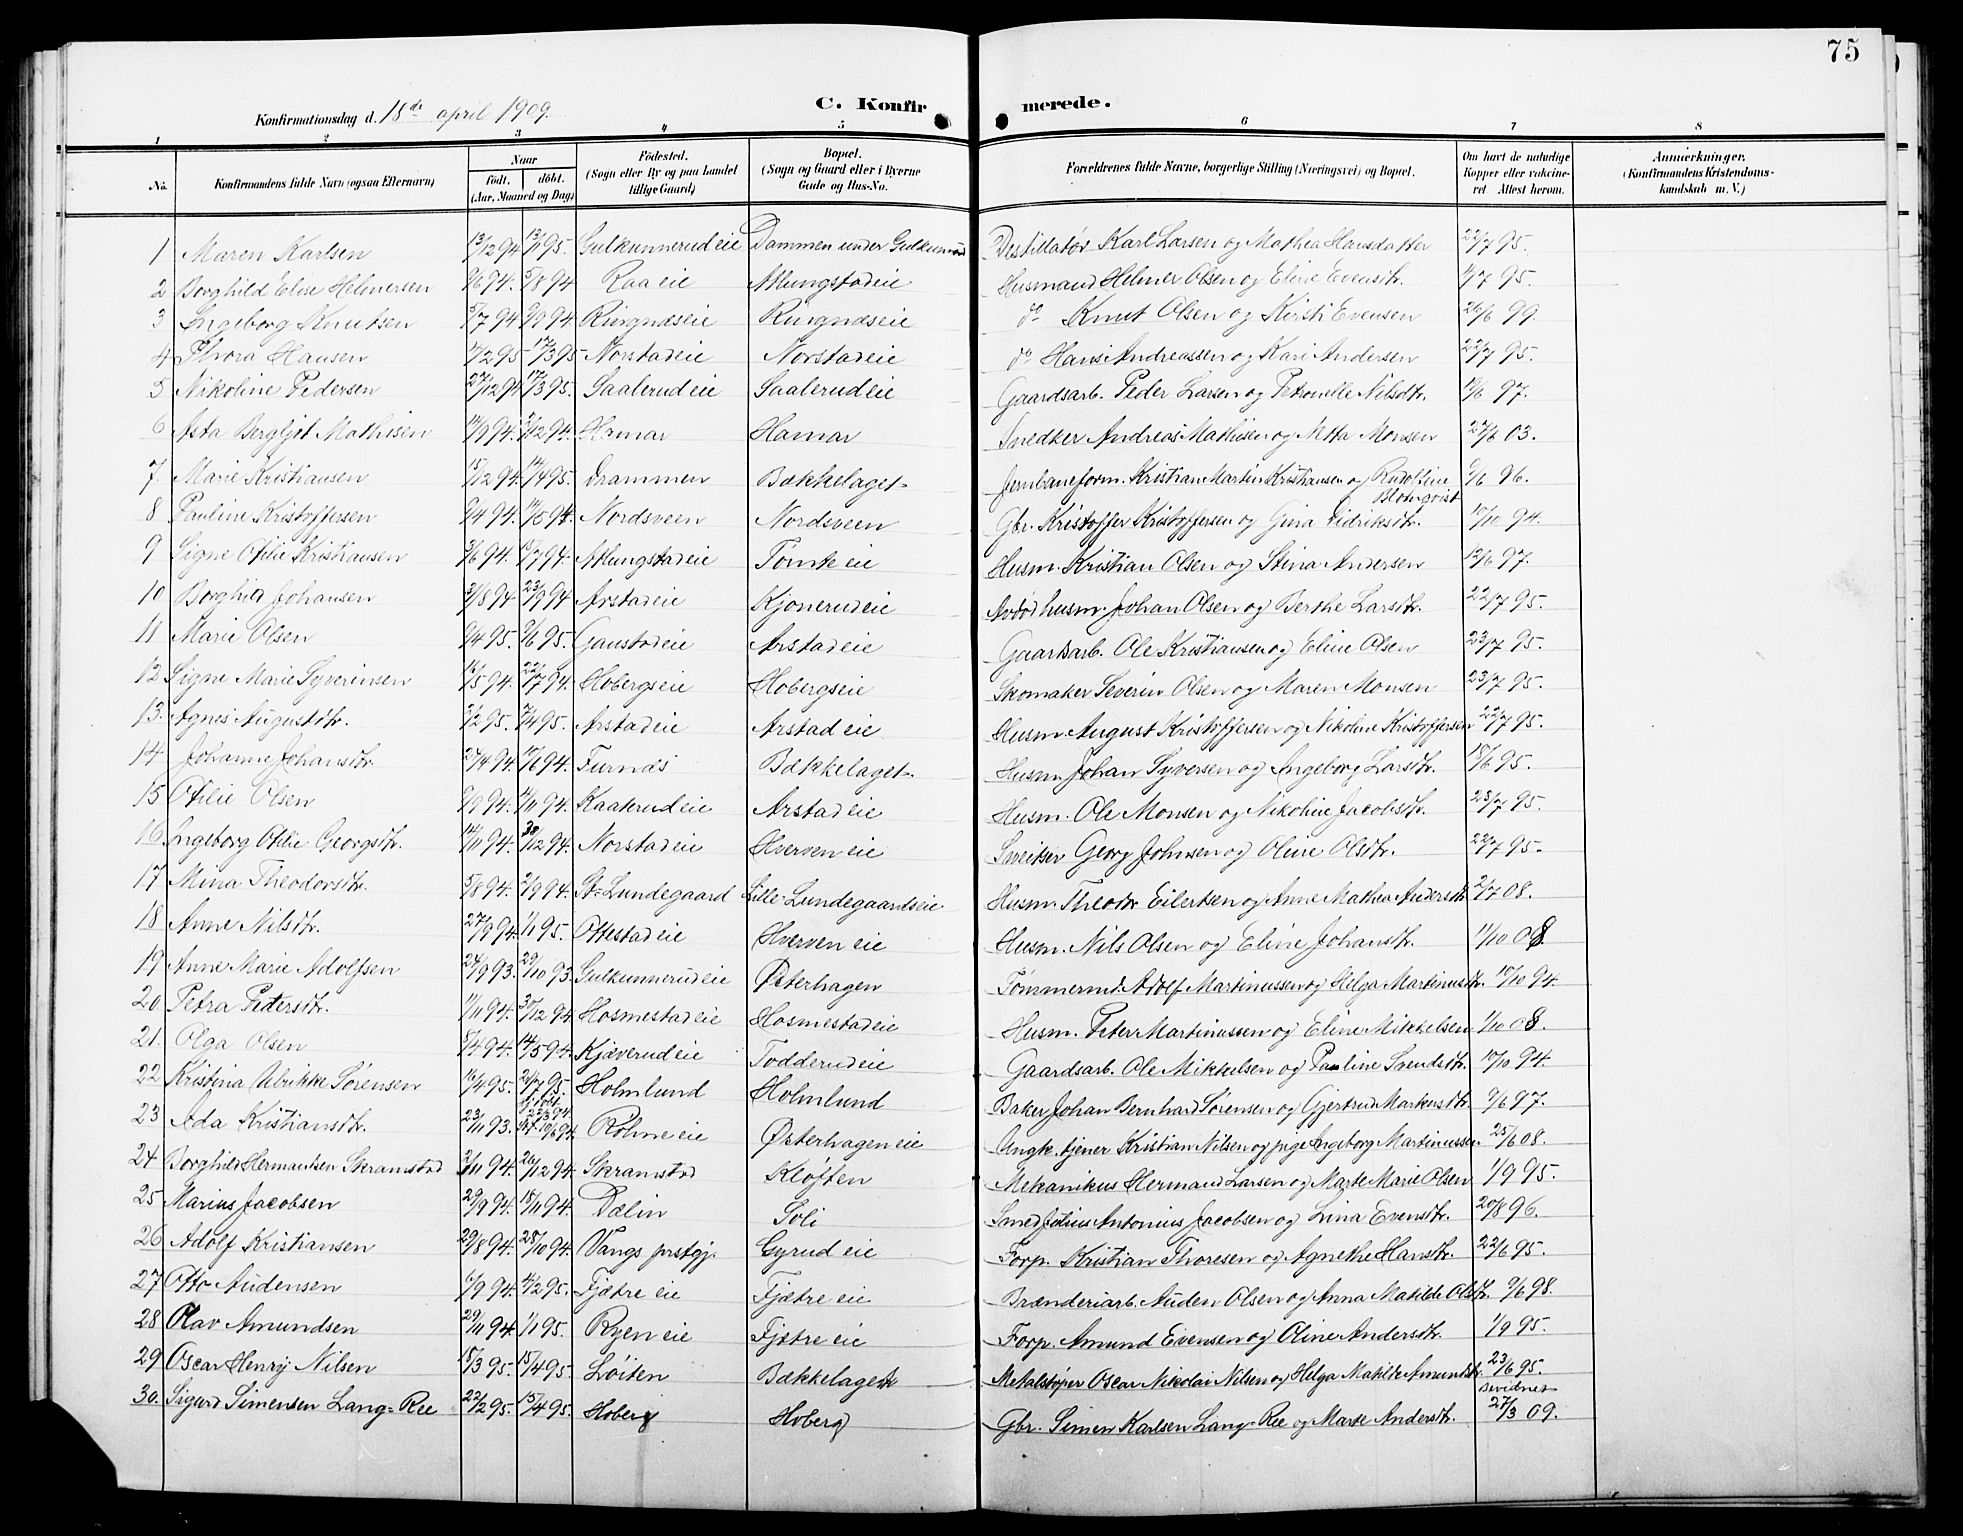 75
Konfirmationsdag d. 18de april 1909. C. Konfirmerede.
1 2 3 4 5 6 7 8
No. Konfirmandens fulde Navn (ogsaa Efternavn) Naar født, døbt. (Aar, Maaned og Dag) Fødested. (Sogn eller By og paa Landet tillige Gaard) Bopæl. (Sogn og Gaard eller i Byerne Gade og Hus-No. Forældrenes fulde Navne, borgerlige Stilling (Næringsvei) og Bopæl. Om havt de naturlige Kopper eller vaccineret Attest herom. Anmerkninger. (Konfirmandens Kristendomskundskab m. V.)
1 Maren Karlsen 13/12 94 13/1 95. Gulkunnerud eie Dammen under Gulkunnerud Destillatør Karl Larsen og Mathea Hansdatter 22/7 95.
2 Borghild Elise Helmersen 9/6 94. 5/8 94 Raa eie Atlungstad eie Husmand Helmer Olsen og Eline Evensdtr. 11/7 95.
3 Ingeborg Knutsen 5/7 94 9/9 94. Ringnæs eie Ringnæs eie do Knut Olsen og Kirsti Evensen 26/6 99.
4 Thora Hansen 11/2 95 17/3 95 Norstad eie Norstad eie do Hans Andreassen og Kari Andersen 22/7 95.
5 Nikoline Pedersen 27/12 94 17/3 95. Saalerud eie Saalerud eie Gaardsarb. Peder Larsen og Petronelle Nilsdtr. 10/6 97.
6 Asta Bergljot Mathisen 14/9 94. 2/12 94. Hamar Hamar Snedker Andreas Mathisen og Mtta Monsen 27/6 03.
7. Marie Kristiansen 15/12 94 14/4 95. Drammen Bækkelaget Jernbaneform. Kristian Martin Kristiansen og Rudolfine Blomqvist 9/6 96.
8 Pauline Kristoffersen 9/4 94. 14/5 94. Nordsveen Nordsveen Gbr. Kristoffer Kristoffersen og Gina Fidriksdtr. 10/10 94.
9 Signe Otilie Kristiansen 3/6 94. 15/7 94. Atlungstad eie Tomte eie Husm. Kristian Olsen og Stina Andersen 12/6 97.
10 Borghild Johansen 31/8 94 23/9 94 Arstad eie Kjonerud eie Avdød husm. Johan Olsen og Berthe Larsdtr. 22/7 95.
11 Marie Olsen 9/4 95. 9/6 95. Gaustad eie Arstad eie Gaardsarb. Ole Kristiansen og Eline Olsen 23/7 95.
12 Signe Marie Syverinsen 16/5 94. 22/7 94. Hobergseie Hobergseie Skomaker Severin Olsen og Maren Monsen 23/7 95.
13. Agnes Augustdtr. 3/2 95. 7/4 95. Arstad eie Arstad eie Husm. August Kristoffersen og Nikoline Kristoffersen 22/7 95.
14 Johanne Johansdtr. 27/4 94. 17/6 94. Furnæs Bækkelaget Husm. Johan Syversen og Ingeborg Larsdtr. 18/6 95.
15 Otilie Olsen 9/9 94. 11/11 94. Kaaterud eie Arstad eie Husm. Ole Monsen og Nikoline Jacobsdtr. 23/7 95.
16 Ingeborg Otilie Georgsdtr. 14/11 94. 30/12 94. Norstad eie Hverven eie Sveitser Georg Johnsen og Oline Olsdtr. 22/7 95.
17 Mina Theodorsdtr. 5/8 94. 2/9 94. St. Lundegaard Lille-Lundegaardseie Husm. Theodor Eilertsen og Anne Mathea Andersdtr. 2/7 08.
18 Anne Nilsdtr. 27/9 94. 1/1 95. Ottestad eie Hverven eie Husm. Nils Olsen og Eline Johansdtr. 11/10 08.
19 Anne Marie Adolfsen 24/9 93. 29/10 93. Gulkunnerud eie Østerhagen Tømmermd. Adolf Martinussen og Helga Martinusdtr. 10/10 94.
20 Petra Petersdtr. 11/11 94. 30/12 94. Hosmestad eie Hosmestad eie Husm. Peter Martinussen og Eline Mikkelsen 1/10 08.
21. Olga Olsen 5/4 94. 14/5 94. Kjæverud eie Todderud eie Gaardsarb. Ole Mikkelsen og Pauline Svendsdtr. 10/10 94.
22 Kristina Ulrikke Sørensen 16/4 95. 21/7 95. Holmlund Holmlund Baker Johan Bernhard Sørensen og Gjertrud Markusdtr. 9/6 97.
23 Ada Kristiansdtr. 23/11 93. 10/6 94 Rohne eie Østerhagen eie Ungk. tjener Kristian Nilsen og pige Ingeborg Martinussen 25/6 08.
24 Borghild Hermansen Skramstad 2/11 94. 26/12 94. Skramstad Kloften Mekanikus Hermand Larsen og Marte Marie Olsen 1/9 95.
25 Marius Jacobsen 29/9 94. 15/11 94. Dælin Soli Smed Julius Antonius Jacobsen og Lina Evensdtr. 20/8 96.
26 Adolf Kristiansen 29/8 94. 28/10 94. Vangs prstgj. Gyrud eie Forp. Kristian Thoresen og Agnethe Hansdtr. 22/6 95.
27 Otto Audensen 6/9 94. 4/2 95. Fjætre eie Fjætre eie Brænderiarb. Auden Olsen og Anna Matilde Olsdtr. 9/6 98.
28 Olav Amundsen 29/11 94. 1/1 95. Ryen eie Fjætre eie Forp. Amund Evensen og Oline Andersdtr. 1/9 95.
29 Oscar Henry Nilsen 15/3 95. 15/4 95. Løiten Bækkelaget Metalstøper Oscar Nikolai Nilsen og Helga Matilde Amundsdtr. 23/6 95.
30. Sigurd Simensen Lang-Ree 22/2 95. 15/4 95. Hoberg Hoberg Gbr. Simen Karlsen Lang-Ree og Marte Andersdtr. bevidnet 27/3 09.